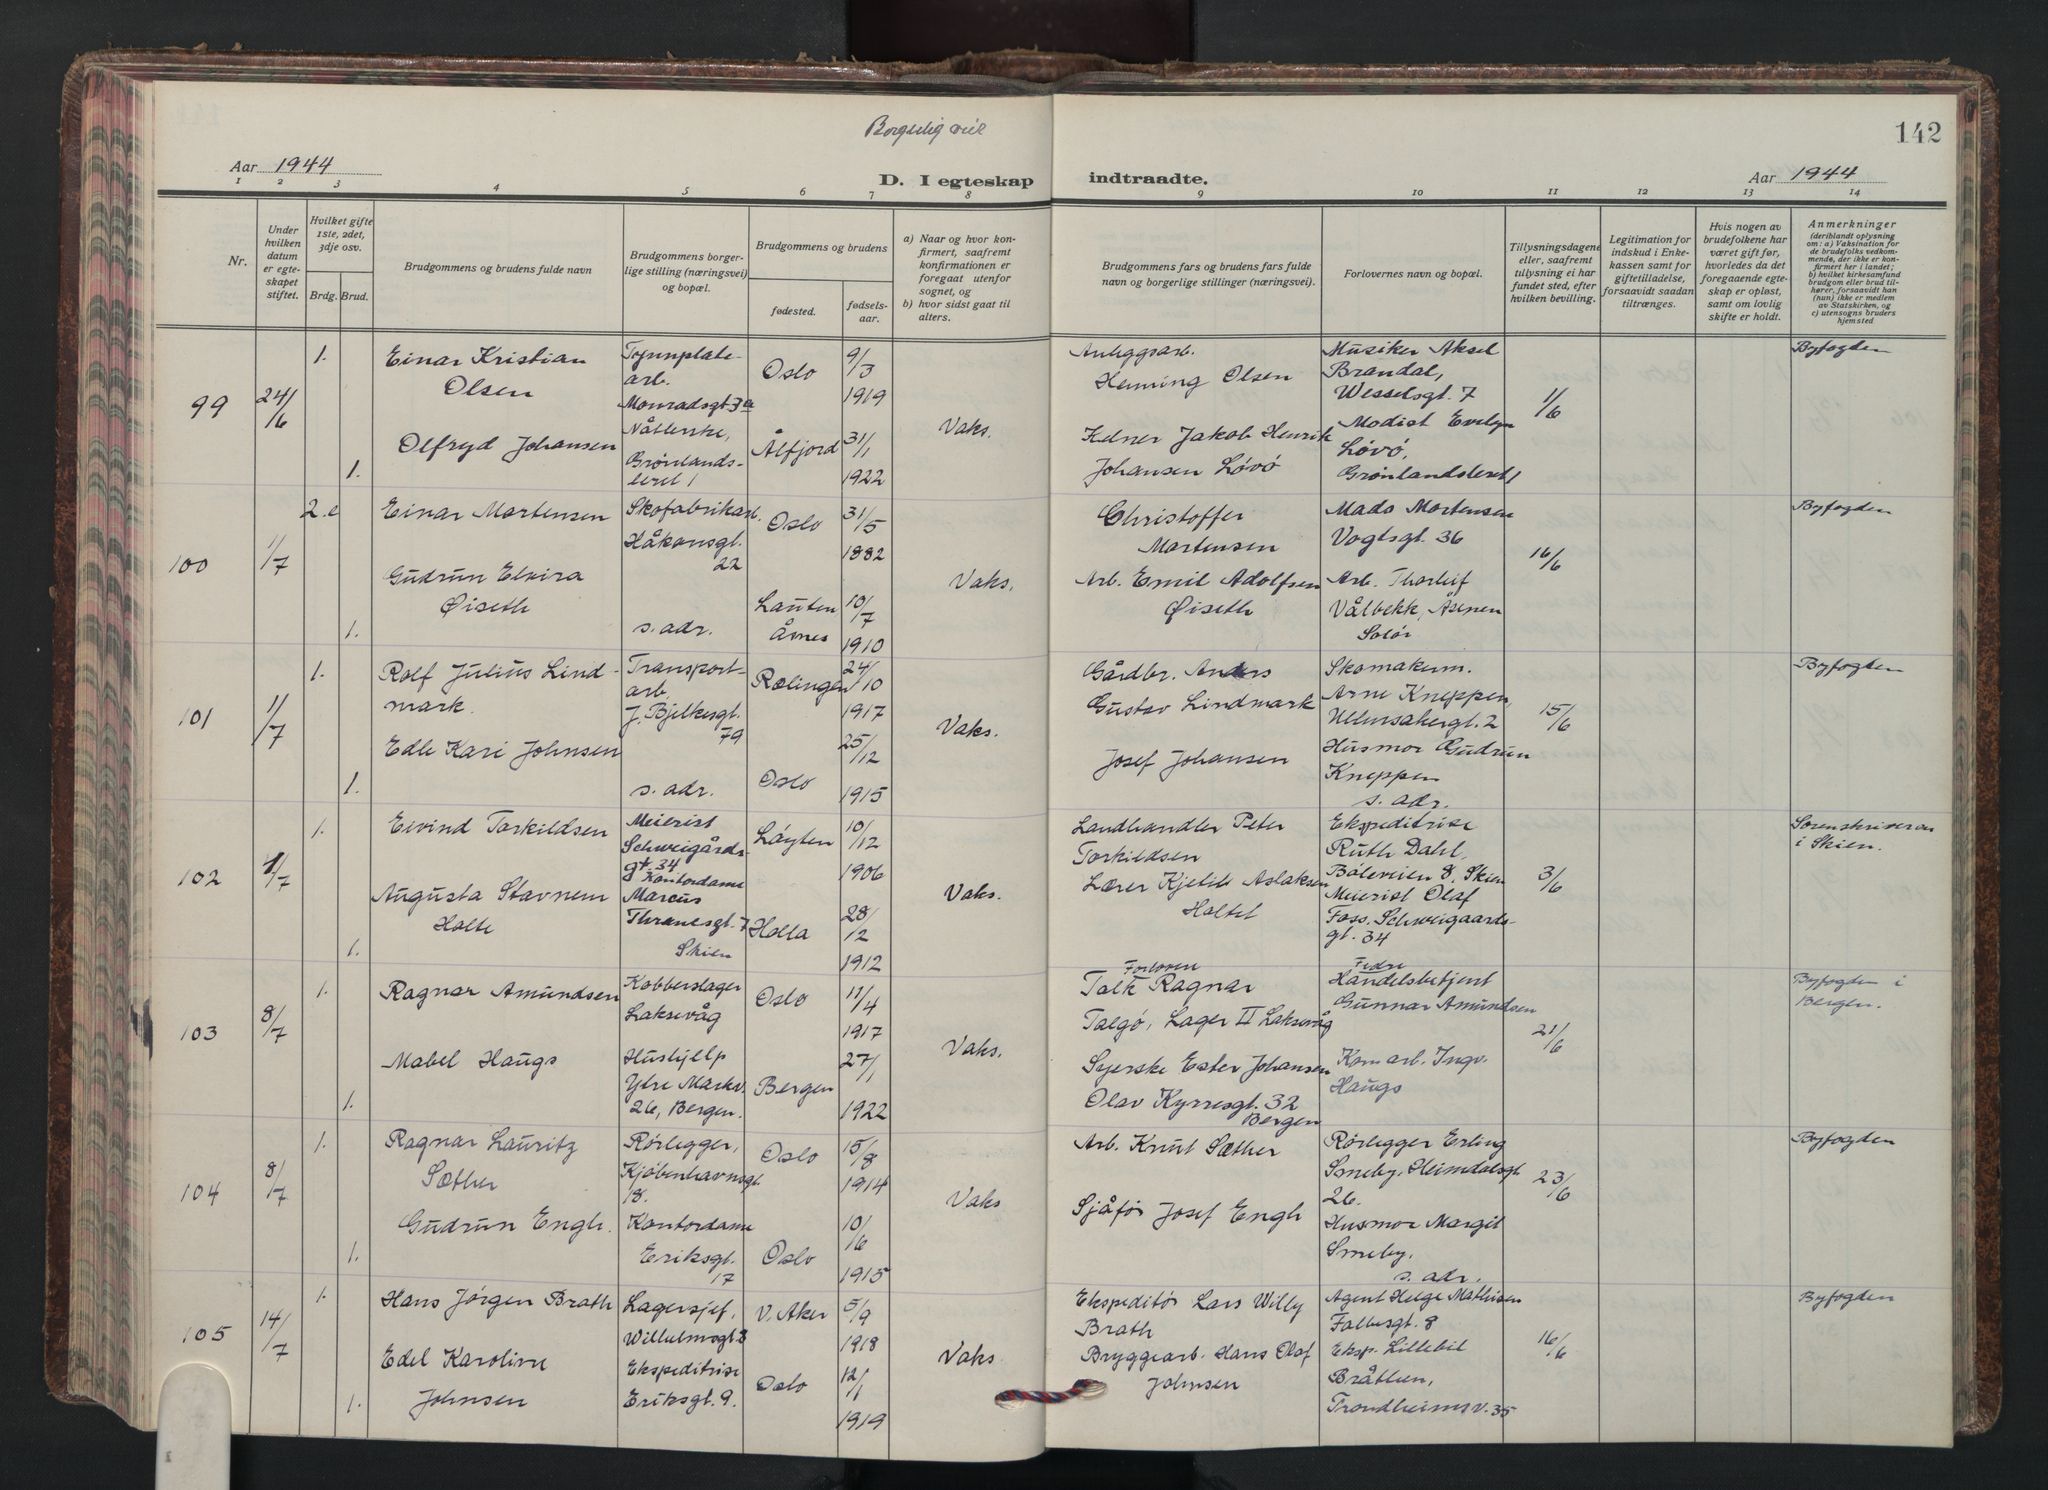 Borgerlig viet
142
Aar 1944
D. I egteskap
indtraadte.
Aar 1944
1 2 3 4 5 6 7 8 9 10 11 12 13 14
Nr.
Under
hvilken
datum
er egte-
skapet
stiftet.
Hvilket gifte
1ste, 2det,
3dje osv.
Brdg. Brud.
Brudgommens og brudens fulde navn
Brudgommens borger-
lige stilling (næringsvei)
og bopæl.
Brudgommens og brudens
fødested.
fødsels-
aar.
a) Naar og hvor kon-
firmert, saafremt
konfirmationen er
foregaat utenfor
sognet, og
b) hvor sidst gaat til
alters.
Brudgommens fars og brudens fars fulde
navn og borgerlige stillinger (næringsvei).
Forlovernes navn og bopæl.
Tillysningsdagene
eller, saafremt
tillysning ei har
fundet sted, efter
hvilken bevilling.
Legitimation for
indskud i Enke-
kassen samt for
giftetilladelse,
forsaavidt saadan
tiltrænges.
Hvis nogen av
brudefolkene har
været gift før,
hvorledes da det
foregaaende egte-
skap er opløst,
samt om lovlig
skifte er holdt.
Anmerkninger
(deriblandt oplysning
om: a) Vaksination for
de brudefolks vedkom-
mende, der ikke er kon-
firmert her i landet;
b) hvilket kirkesamfund
brudgom eller brud til-
hører, forsaavidt han
(hun) ikke er medlem
av Statskirken, og
c) utensogns bruders
hjemsted
99
24/6
1.
Einar Kristian
Olsen
Tynnplate-
arb.
Monradsgt. 3a
Oslo
9/3
1919
Vaks.
Anleggsarb.
Henning Olsen
Musiker Aksel
Brandal,
Wesselsgt. 7
1/6
Byfogden
1.
Olfryd Johansen
Nåtlerske,
Grønlands-
leret 1
Åfjord
31/1
1922
Kelner Jakob Henrik
Johansen Løvø
Modist Evelyn
Løvø,
Grønlandsleret 1
100
1/7
2.e
Einar Mortensen
Skofabrikarb.
Håkonsgt.
22
Oslo
31/5
1882
Vaks.
Christoffer
Mortensen
Mads Mortensen
Vogtsgt. 36
16/6
Byfogden
1.
Gudrun Elvira
Øiseth
s. adr.
Åsnes
10/7
1910
Arb. Emil Adolfsen
Øiseth
Arb. Thorleif
Vålbekk, Åsnen
Solør
101
1/7
1.
Rolf Julius Lind-
mark.
Transport-
arb.
J. Bjelkesgt.
79
Rælingen
24/10
1917
Vaks.
Gårdbr. Anders
Gustav Lindmark
Skomakerm.
Arne Kneppen,
Ullensakergt. 2
15/6
Byfogden
1.
Edle Kari Johnsen
s. adr.
Oslo
25/12
1915
Josef Johansen
Husmor Gudrun
Kneppen
s. adr.
102
1/7
1.
Eivind Torkildsen
Meierist
Schweigårds-
gt. 34
Løyten
10/12
1906
Vaks.
Landhandler Peter
Torkildsen
Ekspeditrise
Ruth Dahl,
Bøleveien 8, Skien
3/6
Sorenskriveren
i Skien.
1.
Augusta Stavnem
Holte
Kontordame
Marcus
Thranesgt. 7
Skien
Holla
28/12
1912
Lærer Kjetil Aslaksen
Holtet
Meierist Olaf
Foss, Schweigaards-
gt. 34
103
8/7
1.
Ragnar Amundsen
Kobberslager
Laksevåg
Oslo
11/4
1917
Vaks.
Forlovere
Tolk Ragnar
Talgø, Lager II Laksevåg
Fedre
Handelsbetjent
Gunnar Amundsen
21/6
Byfogden i
Bergen.
1.
Mabel Haugs
Hushjelp
Ytre Markv.
26, Bergen.
Bergen
27/1
1922
Syerske Ester Johansen
Olav Kyrresgt. 32
Bergen
Komarb. Ingv.
Haugs
104
8/7
1.
Ragnar Lauritz
Sæther
Rørlegger,
Kjøbenhavnsgt.
18.
Oslo
15/8
1914
Vaks
Arb. Knut Sæther
Rørlegger Erling
Smeby, Heimdalsgt.
26.
23/6
Byfogden
1.
Gudrun Engh.
Kontordame
Eriksgt.
17
Oslo
10/6
1915
Sjåfør Josef Engh
Husmor Margit
Smeby,
s. adr.
105
14/7
1.
Hans Jørgen Brath
Lagersjef,
Wilhelmsgt 3
V. Aker
5/9
1918
Vaks.
Ekspeditør Lars Willy
Brath
Agent Helge Mathisen
Falbesgt. 8
16/6
Byfogden
1.
Edel Karoline
Johnsen
Ekspeditrise
Eriksgt. 9.
Oslo
12/1
1919
Bryggearb. Hans Olaf
Johnsen
Eksp. Lillebil
Bråthen,
Trondheimsv. 35